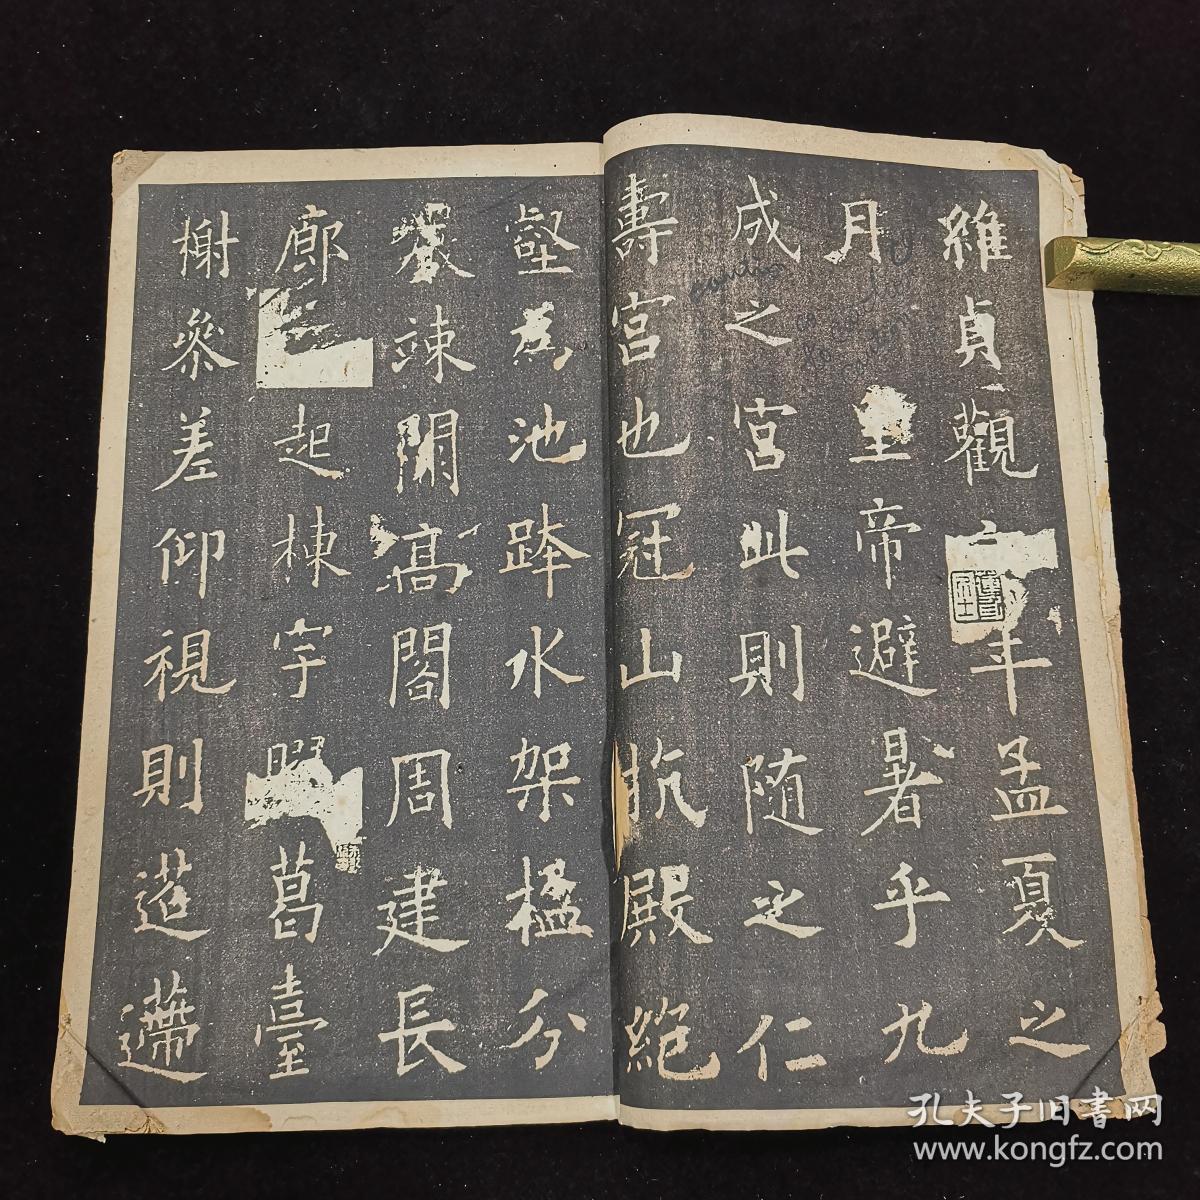 維貞觀六年孟夏之
月皇帝避暑乎九
成之宮此則随之仁
壽宮也冠山抗殿絕
壑為池跨水架楹分
巖竦闕高閣周建長
廊起棟宇膠葛臺
榭參差仰視則迢遰
孔夫子旧書网
www.kongfz.com